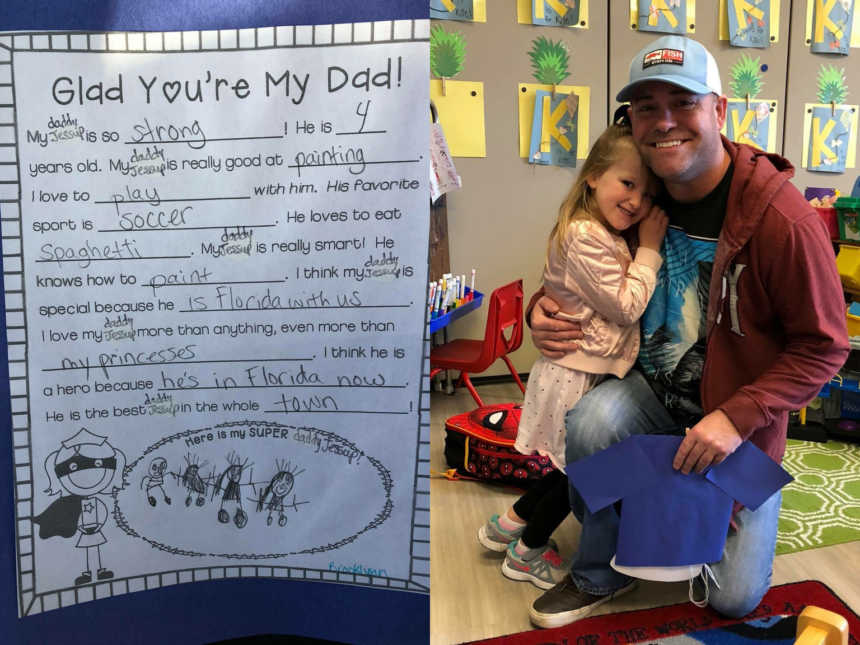 Glad You're My Dad!
My daddy Jessup is so strong! He is 4
years old. My daddy Jessup is really good at painting.
I love to play with him. His favorite
sport is soccer. He loves to eat
spaghetti. My daddy Jessup is really smart! He
knows how to paint. I think my daddy Jessup is
special because he is Florida with us.
I love my daddy Jessup more than anything, even more than
my princesses. I think he is
a hero because he's in Florida now.
He is the best daddy Jessup in the whole town!
Here is my SUPER daddy Jessup!
Brooklynn
FISH
K
K
K
K
K
OF THE WORLD